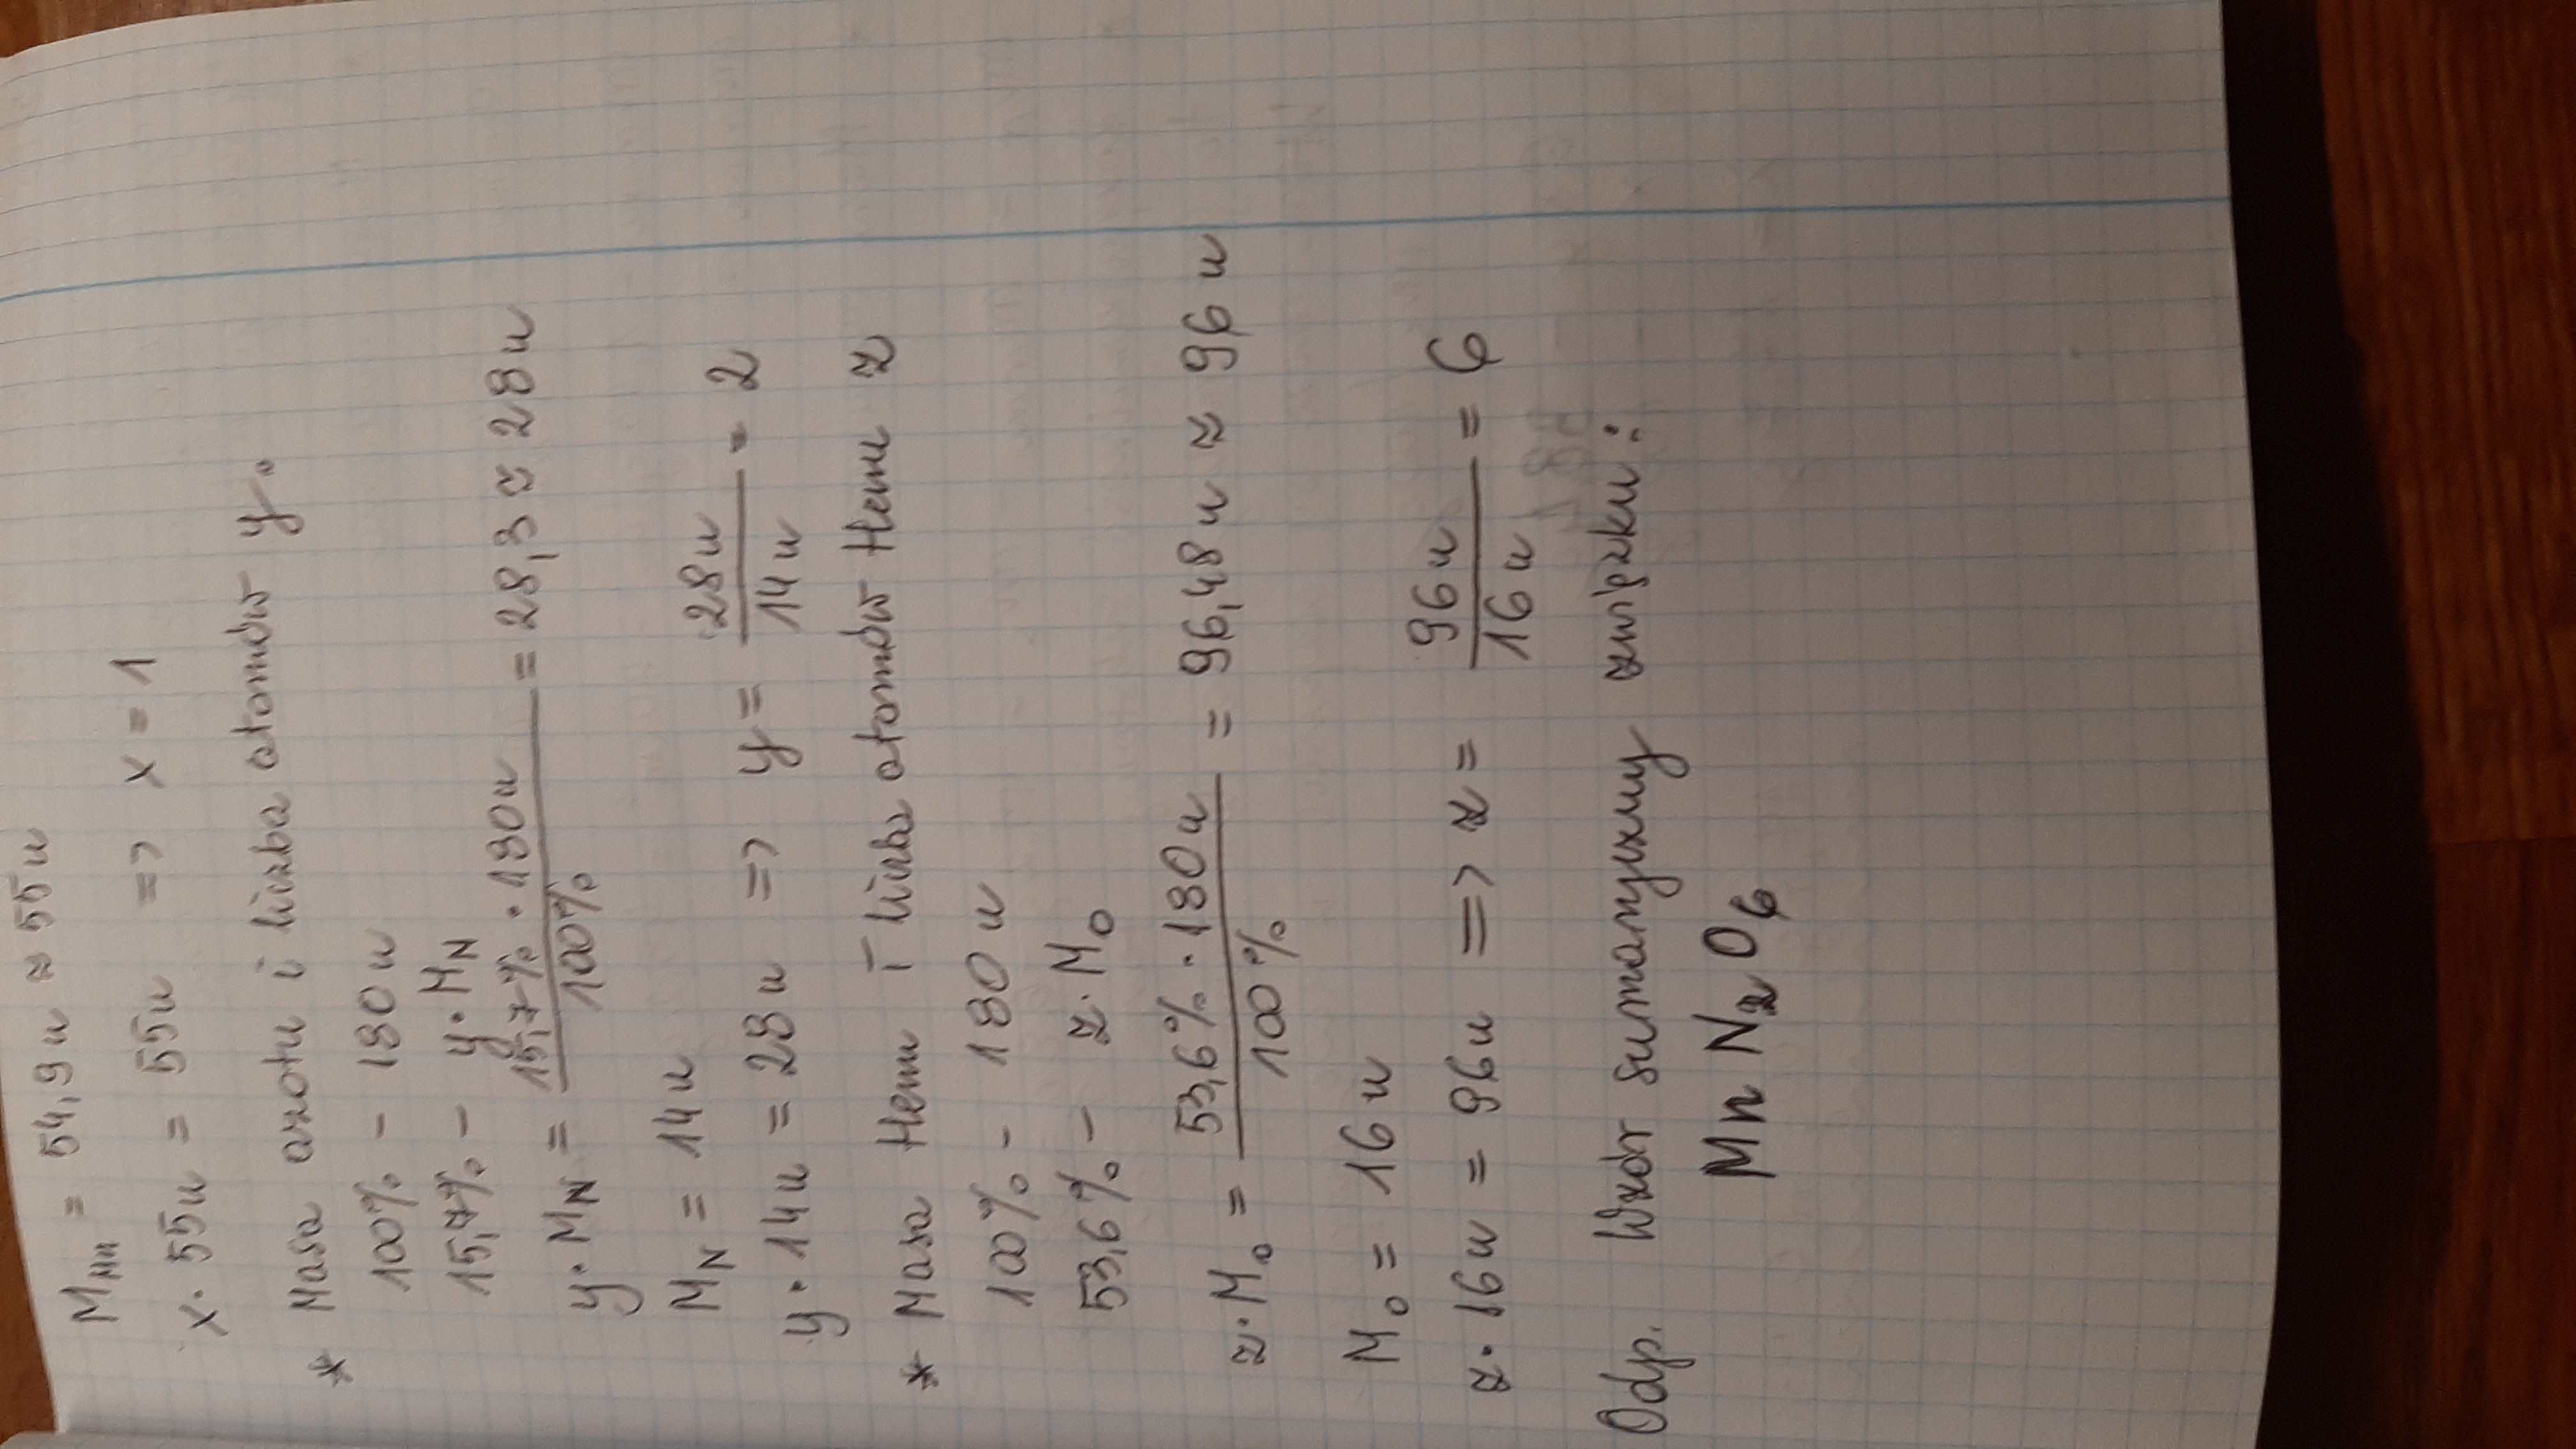 M Mn = 54,9 u ≈ 55 u
x · 55u = 55u => x = 1
* Masa azotu i liczba atomów y.
100% - 180 u
15,7% - y · M N
y · M N = 15,7% · 180u / 100% = 28,3 ≈ 28u
M N = 14u
y · 14u = 28u => y = 28u / 14u = 2
* Masa tlenu i liczba atomów tlenu z
100% - 180 u
53,6% - z · M O
z · M O = 53,6% · 180u / 100% = 96,48 u ≈ 96 u
M O = 16 u
z · 16u = 96u => z = 96u / 16u = 6
Odp. Wzór sumaryczny związku:
Mn N₂O₆